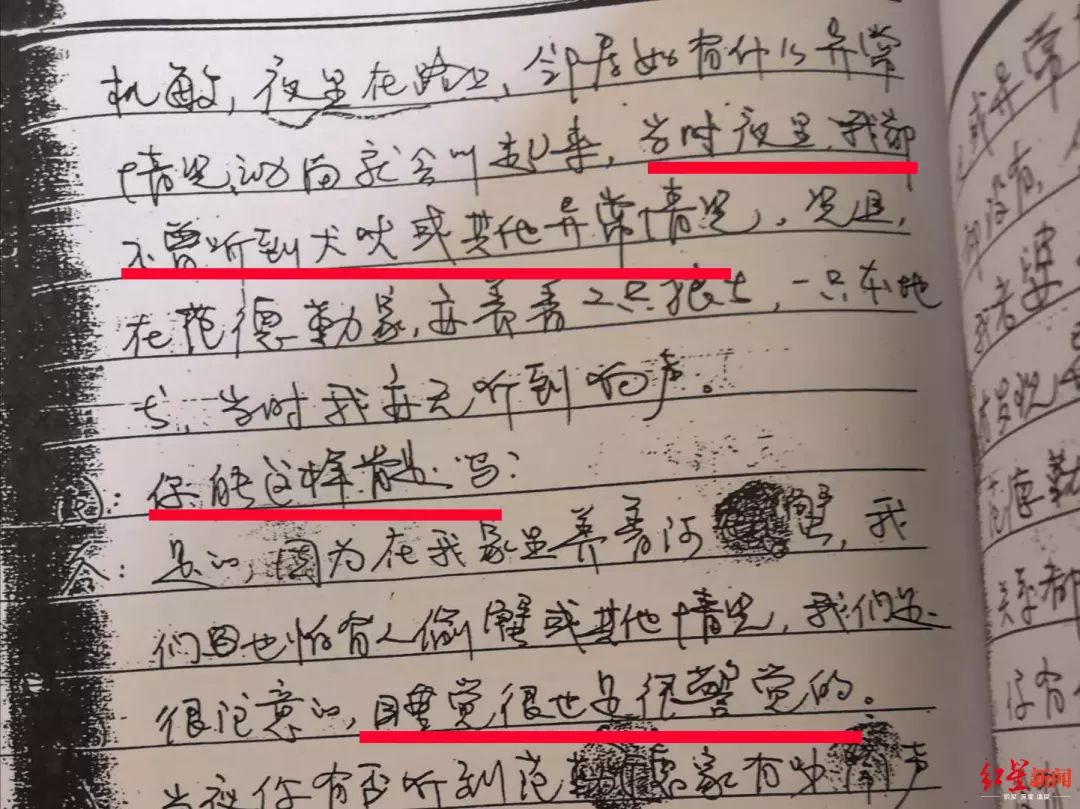 机敏，夜里在路上，邻居如有什么异常
情况，动静就会叫起来，当时夜里，我都
不曾听到犬吠或其他异常情况，况且，
在范德勤家，亦养着二只狼犬，一只本地
犬，当时我亦无听到响声。
问：你能这样肯定吗？
答：是的，因为在我家里养着河蟹，我
们因也怕有人偷蟹或其他情况，我们是
很注意的，睡觉很也是很警觉的。
当夜你有否听到范勤家有吵声
或异常
都没有，
我老婆
范德勤
关系都
你有
红星新闻